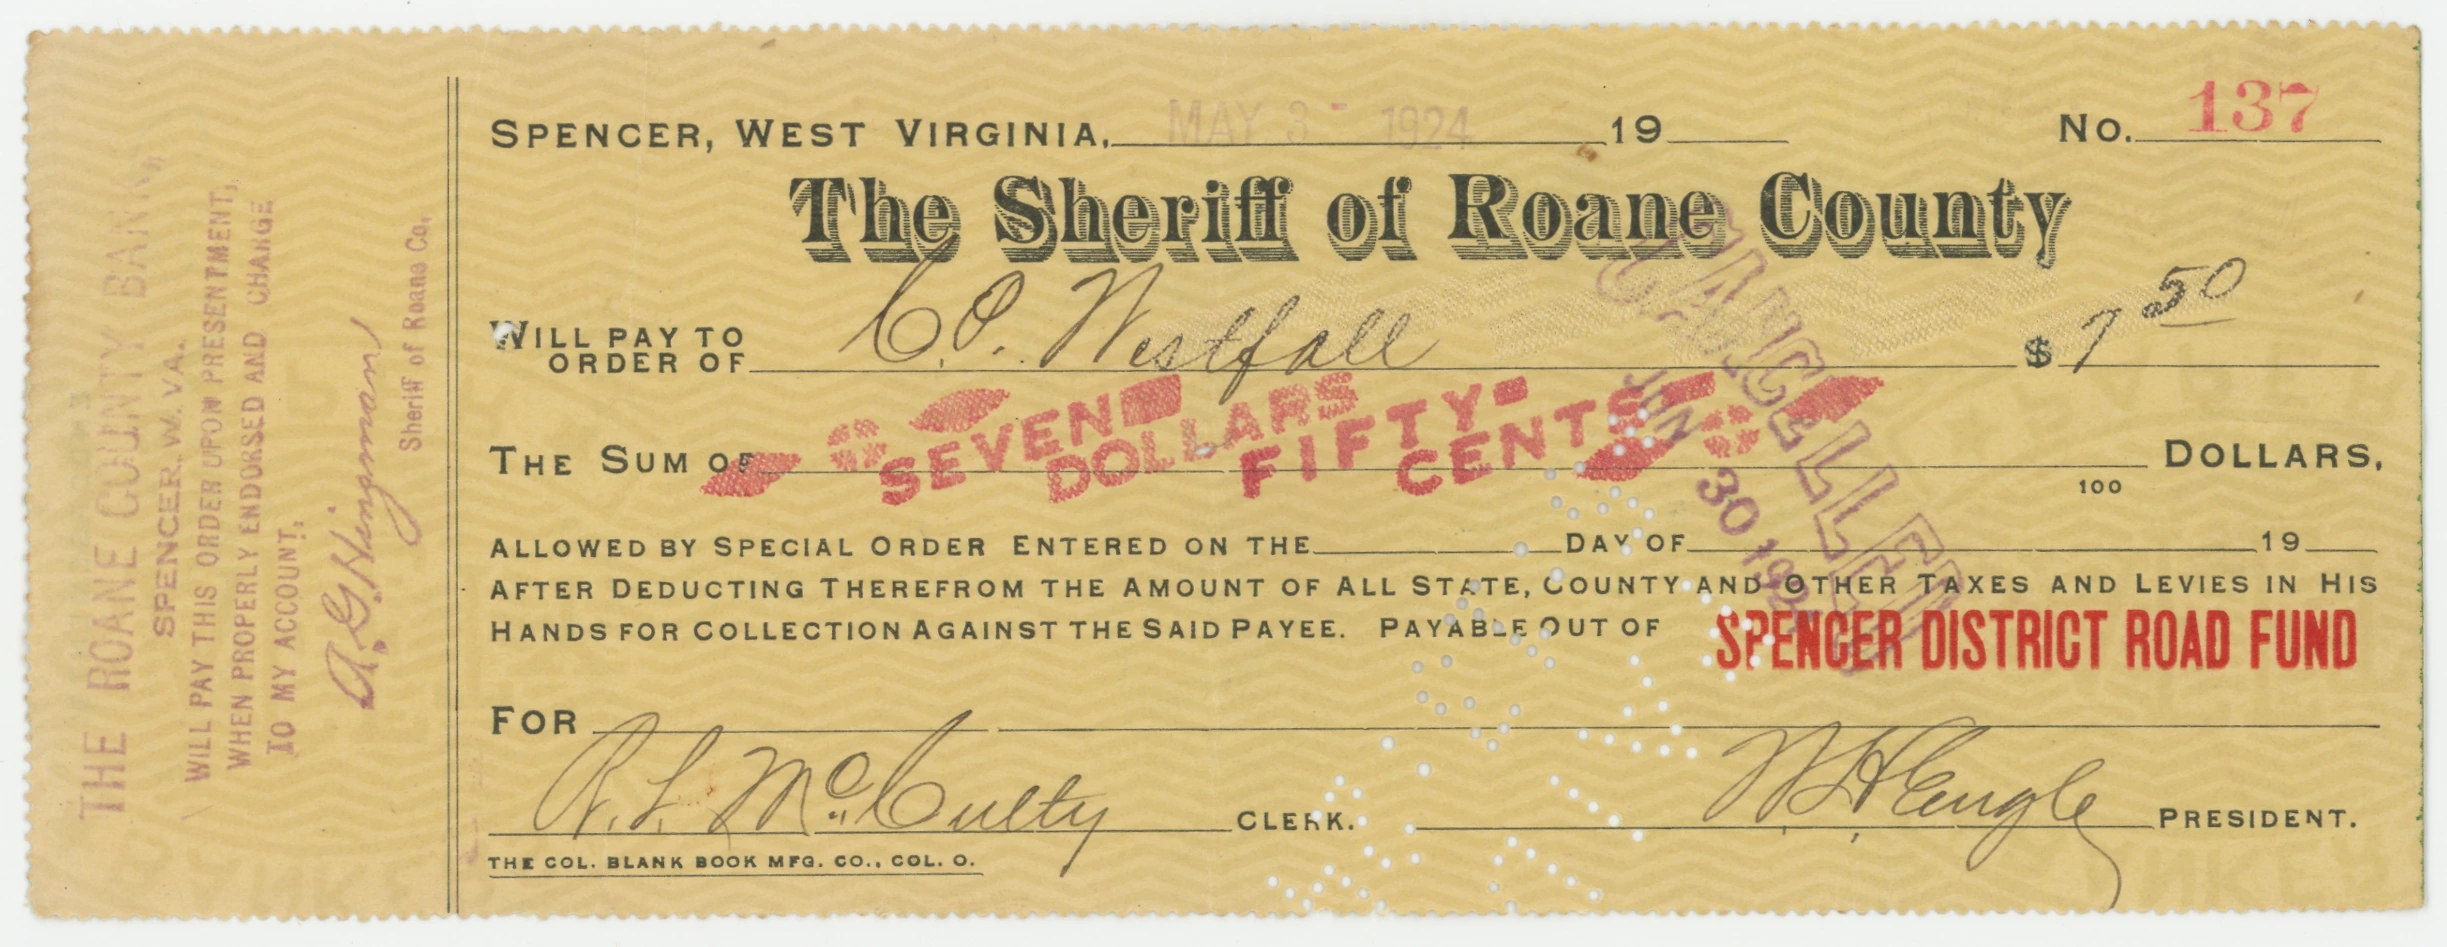 SPENCER, WEST VIRGINIA, MAY 3 - 1924 19
No. 137
The Sheriff of Roane County
WILL PAY TO ORDER OF C. O. Westfall $ 7 50
THE SUM OF SEVEN DOLLARS FIFTY CENTS DOLLARS,
100
ALLOWED BY SPECIAL ORDER ENTERED ON THE DAY OF 19
AFTER DEDUCTING THEREFROM THE AMOUNT OF ALL STATE, COUNTY AND OTHER TAXES AND LEVIES IN HIS
HANDS FOR COLLECTION AGAINST THE SAID PAYEE. PAYABLE OUT OF SPENCER DISTRICT ROAD FUND
FOR
R. L. McCulty CLERK. W. H. Engle PRESIDENT.
THE COL. BLANK BOOK MFG. CO., COL. O.
CANCELLED
JUN 30
THE ROANE COUNTY BANK,
SPENCER, W. VA.
WILL PAY THIS ORDER UPON PRESENTMENT,
WHEN PROPERLY ENDORSED AND CHARGE
TO MY ACCOUNT.
A. G. Hingman
Sheriff of Roane Co.